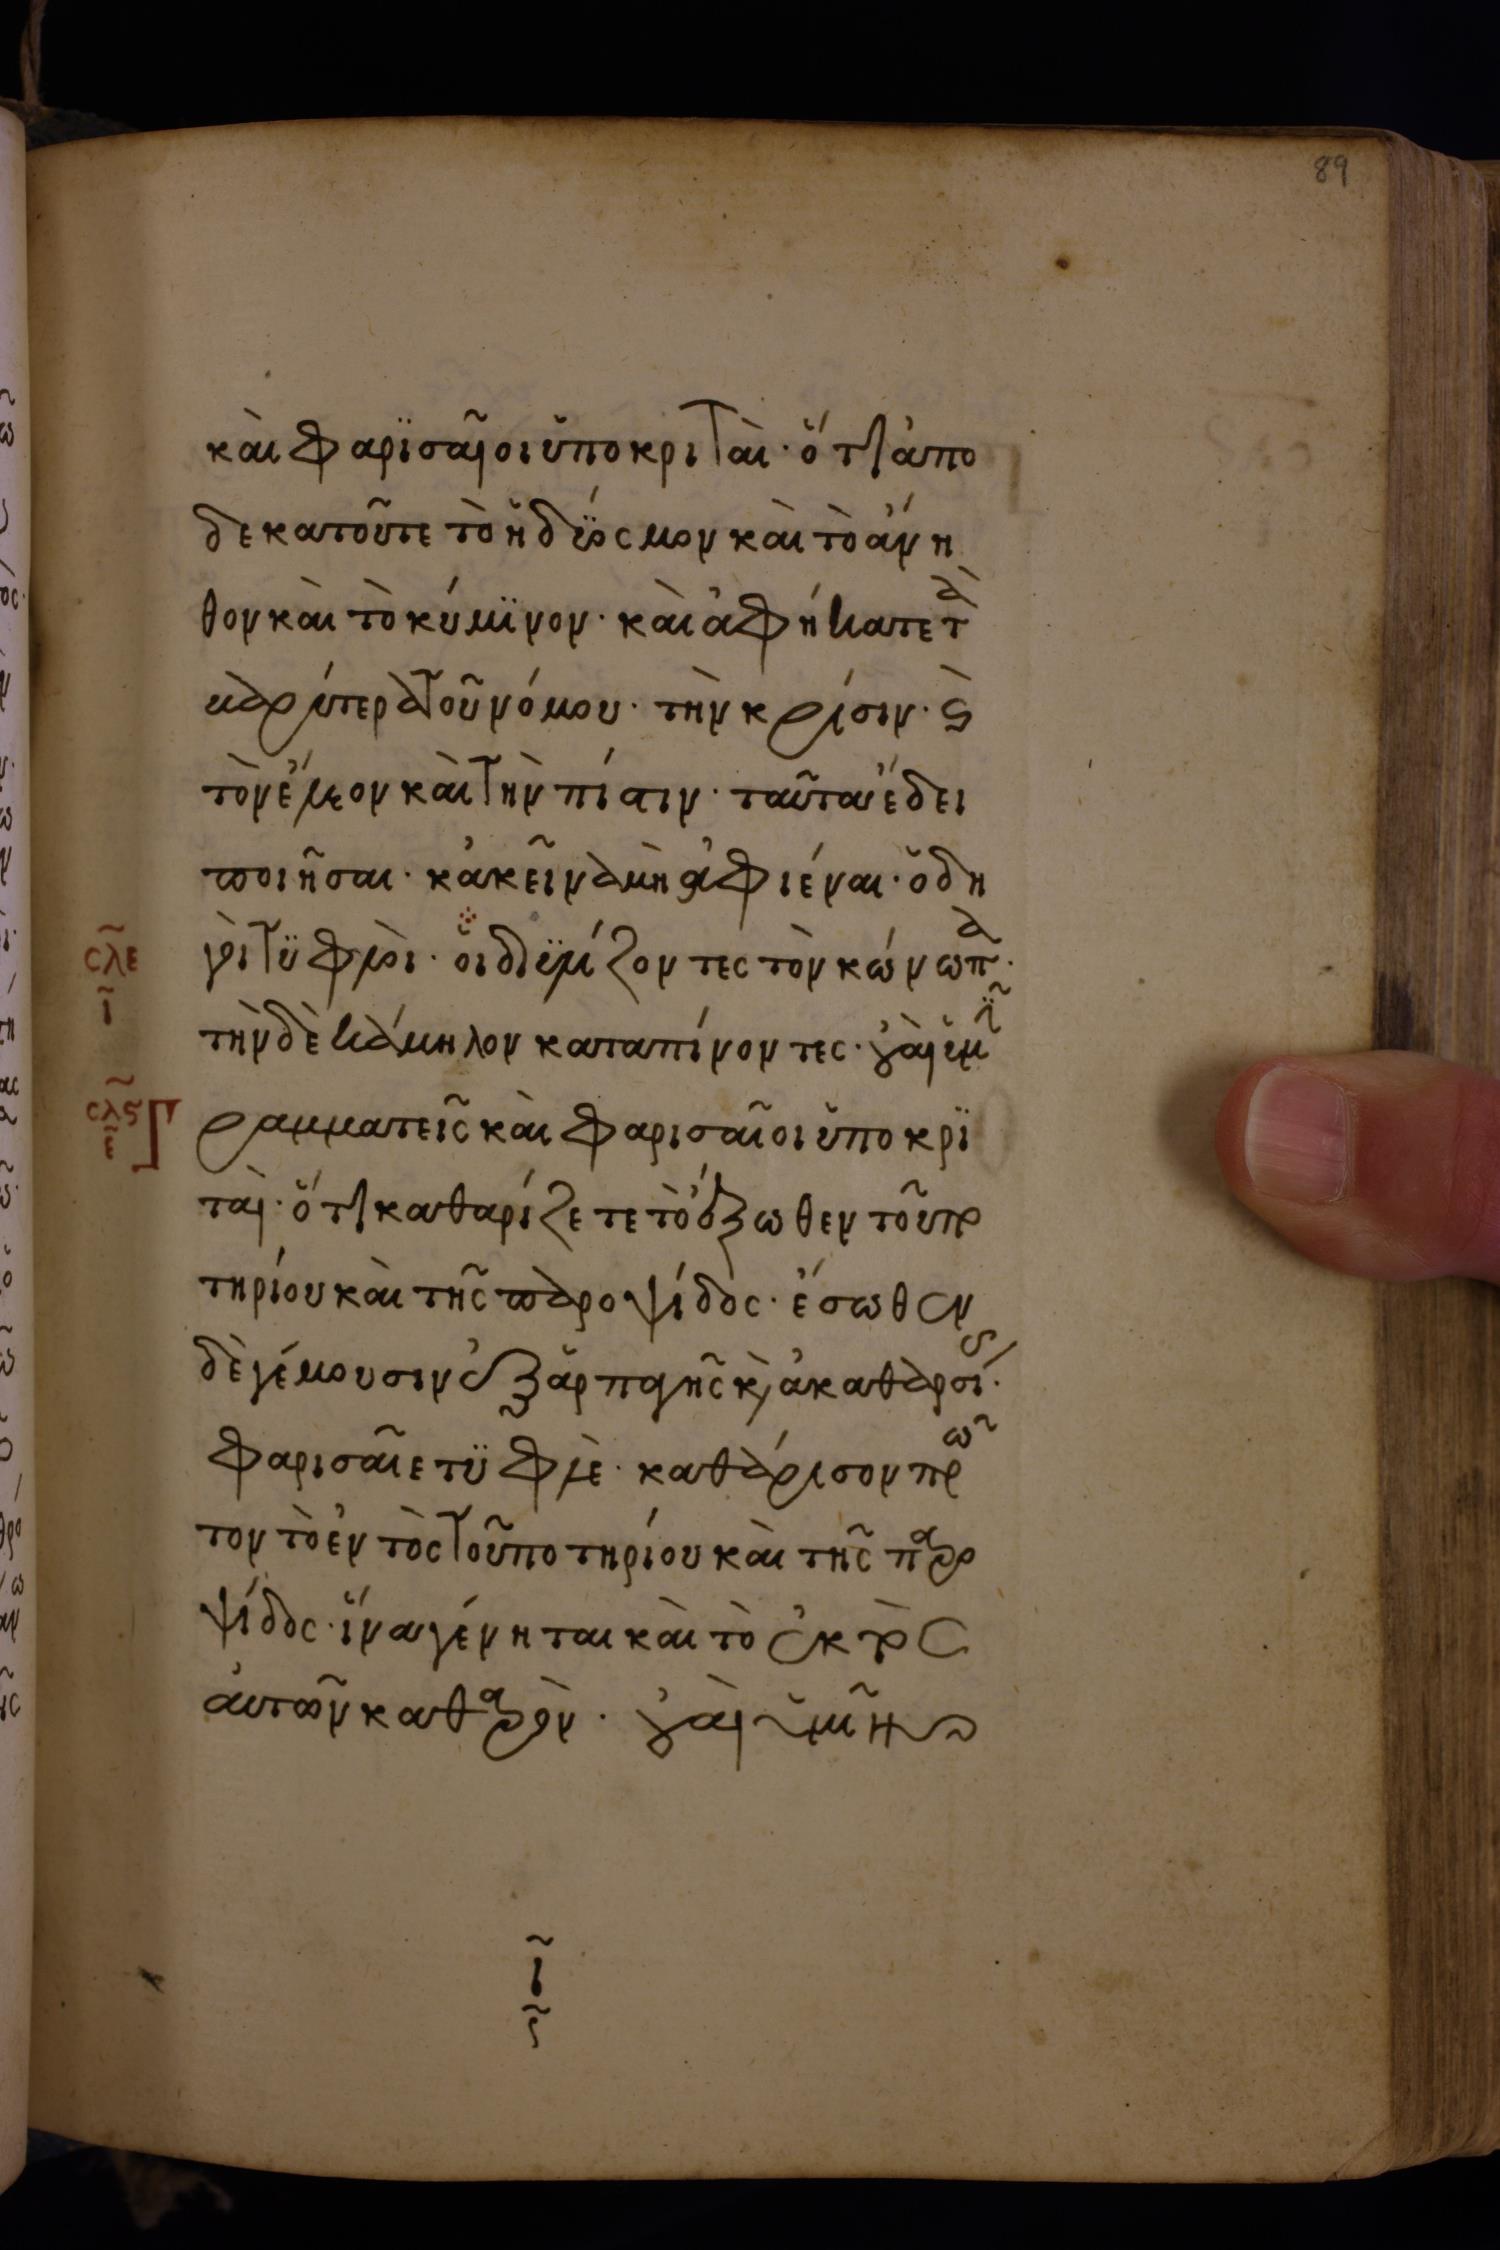 89
κὰι φαρϊσαῖοι ὑποκριταὶ· ὅτι ἀπο
δεκατοῦτε τὸ ἡδΰοσμον κὰι τὸ ἄνη
θον κὰι τὸ κύμϊνον· κὰι ἀφήκατε τὰ
βαρύτερα τοῦ νόμου· τὴν κρίσιν· ϛ
τὸν ἔλεον κὰι τὴν πίστιν· ταῦτα ἔδει
ποιῆσαι· κἀκεῖνα μὴ ἀφιέναι· ὁδη
γοὶ τϋφλοὶ· οἱ διϋλίζοντες τὸν κώνωπα·
σλε
ι
τὴν δὲ κάμηλον καταπίνοντες· οὐαὶ ὑμῖν
σλϛ
ε
γραμματεῖς κὰι φαρισαῖοι ὑποκρϊ
ταὶ· ὅτι καθαρίζετε τὸ ἔξωθεν τοῦ πο
τηρίου κὰι τῆς παροψίδος· ἔσωθεν
δὲ γέμουσιν ἐξ ἁρπαγῆς κ ἀκαθαρσί·
φαρισαῖε τϋφλὲ· καθάρισον πρῶ
τον τὸ ἐντὸς τοῦ ποτηρίου κὰι τῆς παρο
ψίδος· ἵνα γένηται κὰι τὸ ἐκτὸς
ἀυτῶν καθαρὸν· οὐαὶ ὑμῖν
ι
ς